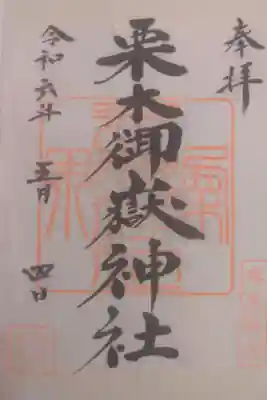 奉拝
栗木御嶽神社
令和六年
五月
四日